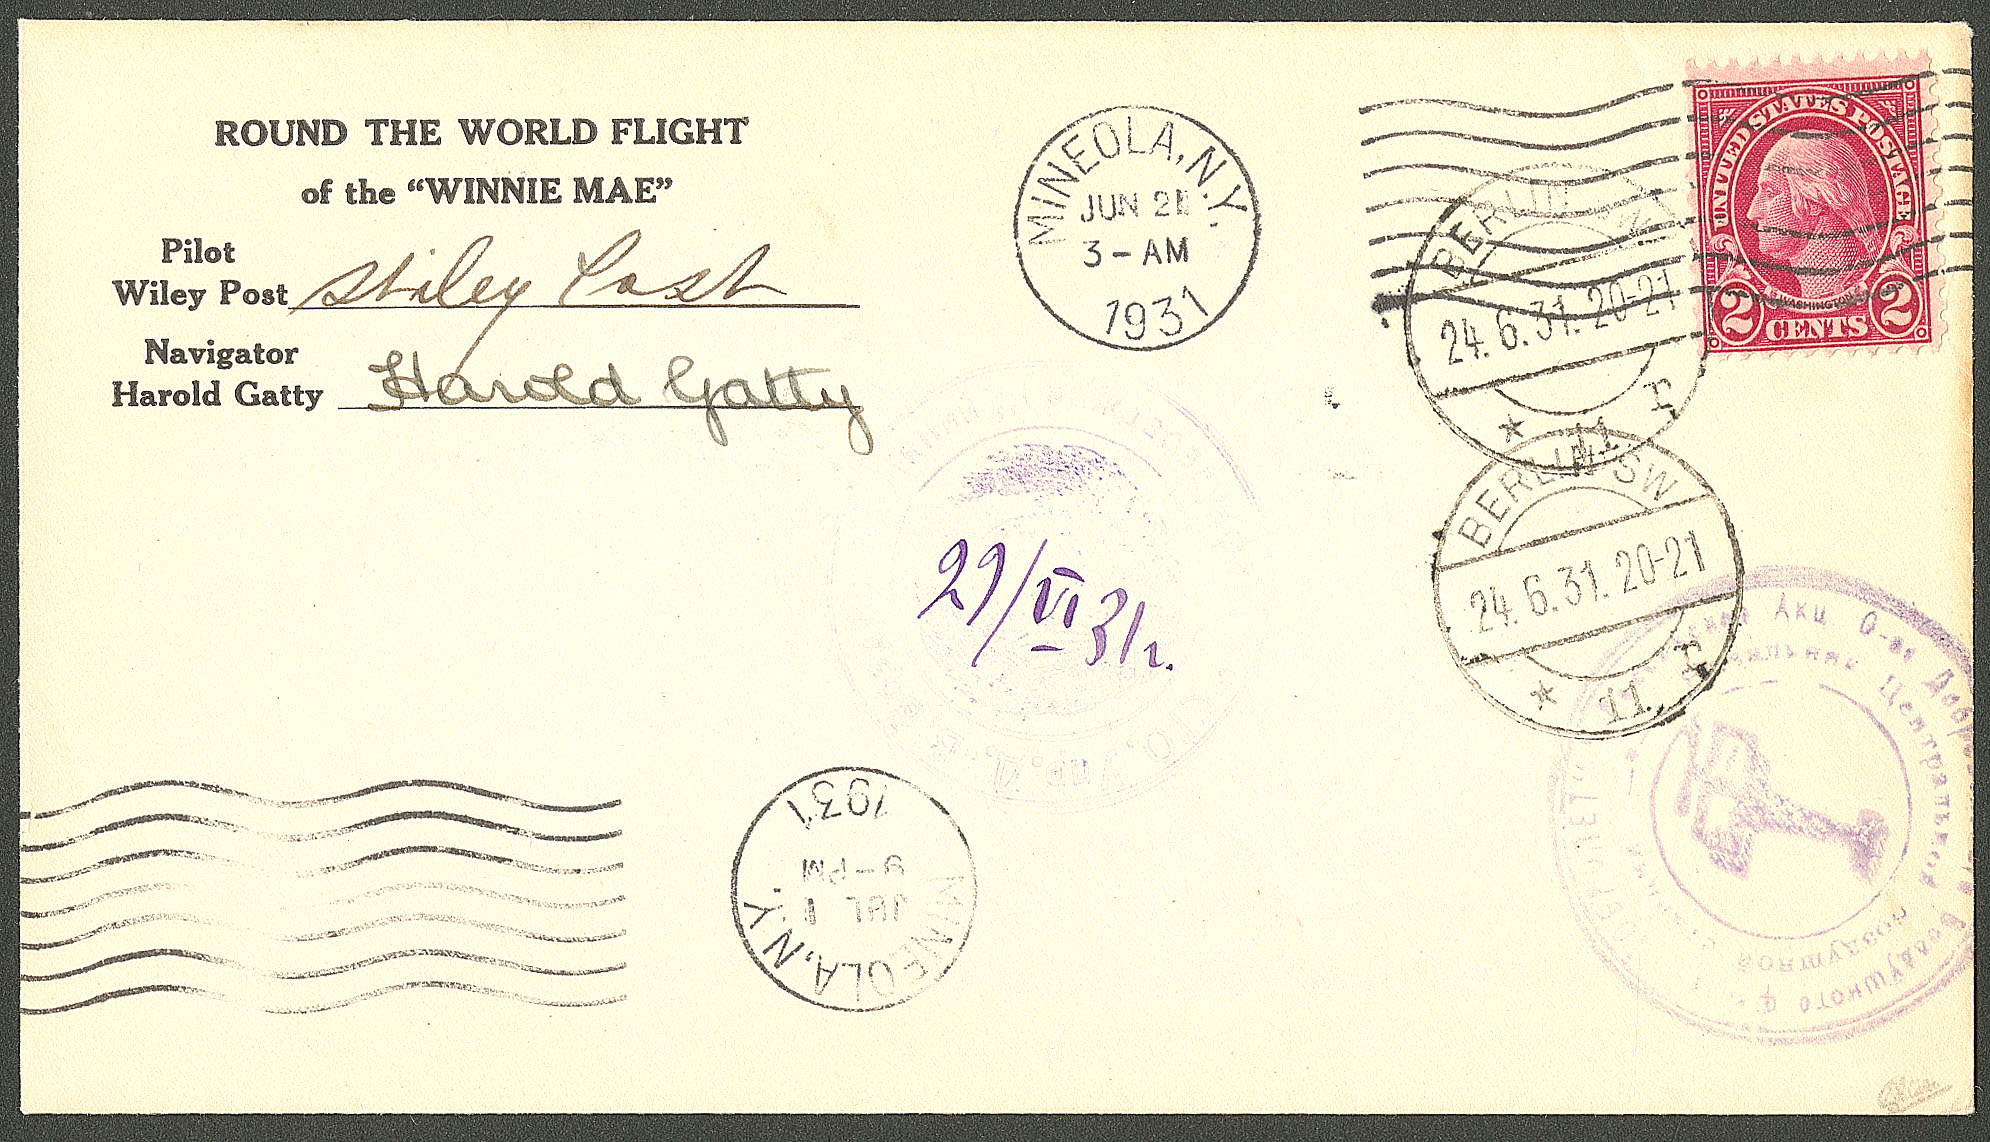 ROUND THE WORLD FLIGHT
of the “WINNIE MAE”
Pilot
Wiley Post Wiley Post
Navigator
Harold Gatty Harold Gatty
MINEOLA, N.Y.
JUN 2
3 – AM
1931
UNITED STATES POSTAGE
WASHINGTON
2 CENTS 2
BERLIN SW
24.6.31. 20-21
* 11 r
BERLIN SW
24.6.31. 20-21
* 11 r
29/VI 31г.
MINEOLA, N.Y.
JUL 1
9 – PM
1931
Акц. О-во
Центральной
Воздушного
воздушной